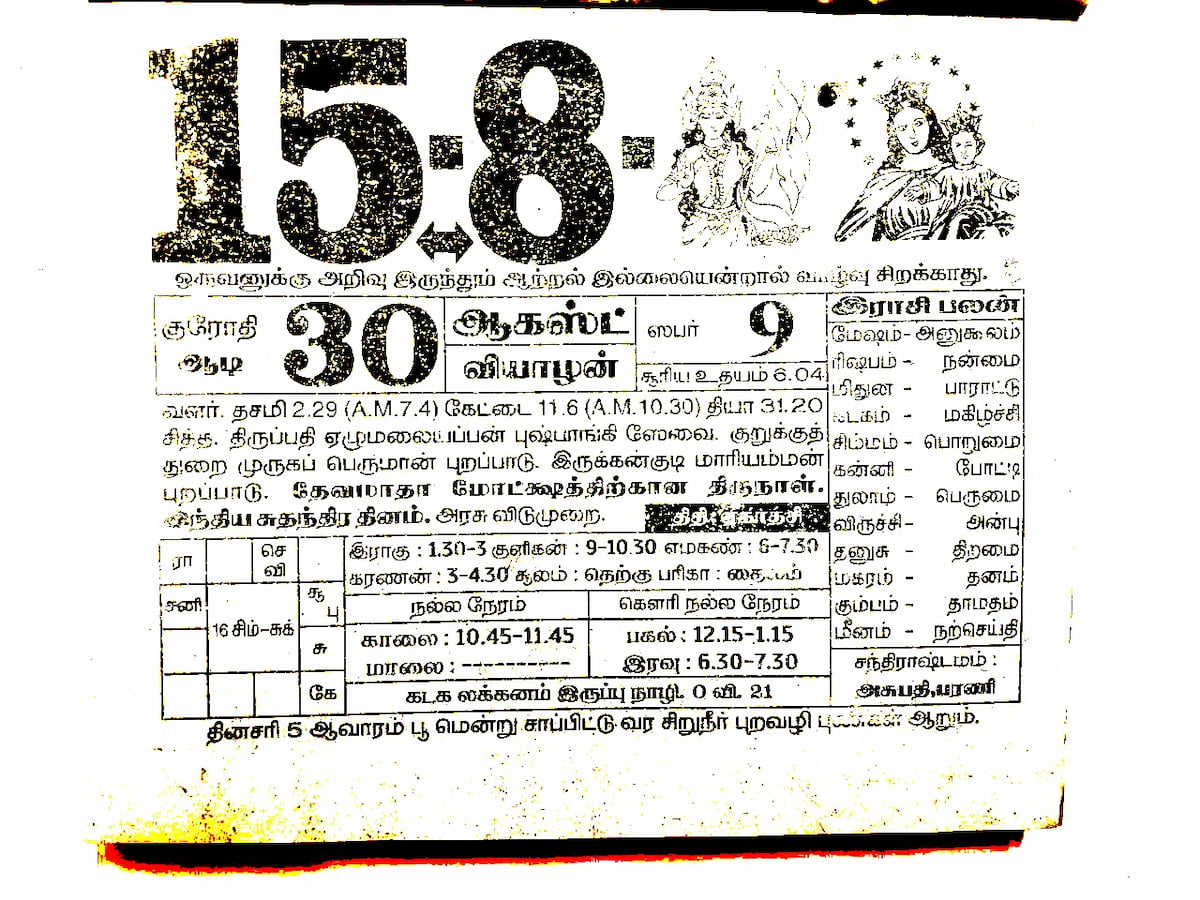 15-8-
ஒருவனுக்கு அறிவு இருந்தும் ஆற்றல் இல்லையென்றால் வாழ்வு சிறக்காது.
குரோதி
ஆடி
30
ஆகஸ்ட்
வியாழன்
ஸபர் 9
சூரிய உதயம் 6.04
வளர். தசமி 2.29 (A.M.7.4) கேட்டை 11.6 (A.M.10.30) தியா 31.20
சித்த. திருப்பதி ஏழுமலையப்பன் புஷ்பாங்கி ஸேவை. குறுக்குத்
துறை முருகப் பெருமான் புறப்பாடு. இருக்கன்குடி மாரியம்மன்
புறப்பாடு. தேவமாதா மோட்க்ஷத்திற்கான திருநாள்.
இந்திய சுதந்திர தினம். அரசு விடுமுறை.
திதி: ஏகாதசி
இராசி பலன்
மேஷம் - அனுகூலம்
ரிஷபம் - நன்மை
மிதுன - பாராட்டு
கடகம் - மகிழ்ச்சி
சிம்மம் - பொறுமை
கன்னி - போட்டி
துலாம் - பெருமை
விருச்சி - அன்பு
தனுசு - திறமை
மகரம் - தனம்
கும்பம் - தாமதம்
மீனம் - நற்செய்தி
சந்திராஷ்டமம் :
அசுபதி,பரணி
ரா
செ
வி
சனி
16 சிம்-சுக்
சூ
பு
சு
கே
இராகு : 1.30-3 குளிகன் : 9-10.30 எமகண் : 6-7.30
கரணன் : 3-4.30 சூலம் : தெற்கு பரிகா : தைலம்
நல்ல நேரம்
காலை : 10.45-11.45
மாலை : ----------
கௌரி நல்ல நேரம்
பகல் : 12.15-1.15
இரவு : 6.30-7.30
கடக லக்கனம் இருப்பு நாழி. 0 வி. 21
தினசரி 5 ஆவாரம் பூ மென்று சாப்பிட்டு வர சிறுநீர் புறவழி புண்கள் ஆறும்.